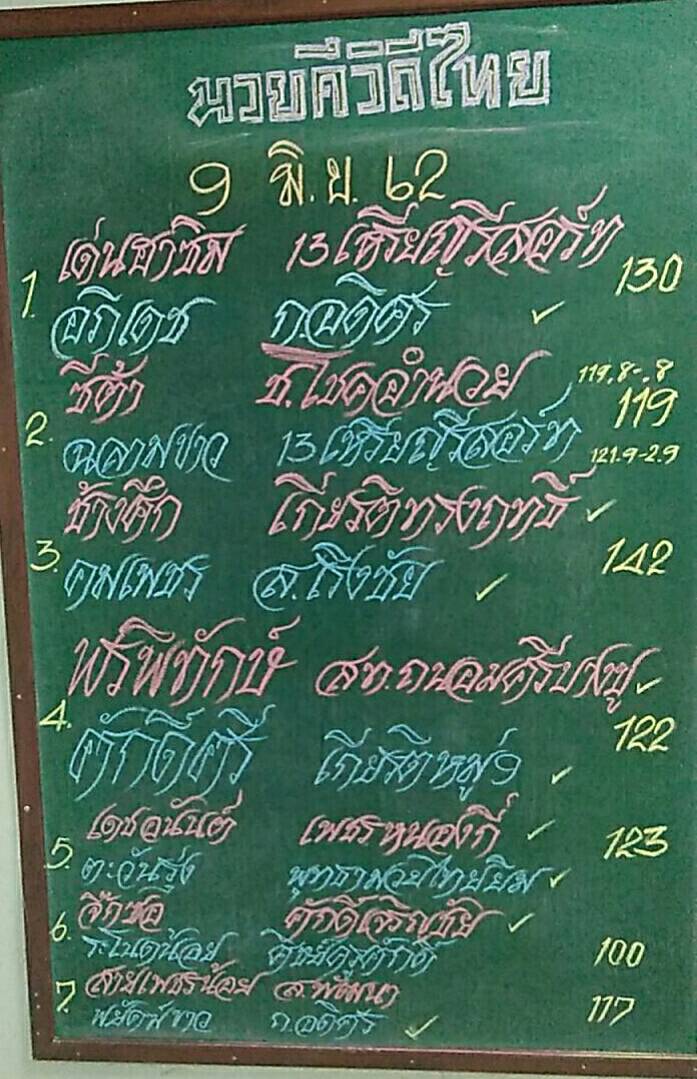 มวยดีวิถีไทย
9 มิ.ย. 62
1. เด่นฮาซิม 13เหรียญรีสอร์ท 130
อภิเดช ก.อดิศร ✓
2. ซีต้า ช.โชคอำนวย 119.8-.8 119
ฉลามขาว 13เหรียญรีสอร์ท 121.9-2.9
3. ช้างศึก เกียรติทรงฤทธิ์ ✓ 142
คมเพชร ส.เริงชัย ✓
4. พรพิทักษ์ สท.ถนอมศรีบางปู ✓ 122
ศักดิ์ศรี เกียรติหมู่9 ✓
5. เดชอนันต์ เพชรหนองกี่ ✓ 123
ตะวันรุ่ง พุทธามวยไทยยิม ✓
6. ศักดิ์เจริญชัย ✓ 100
ระโนดน้อย
7. สายเพชรน้อย ส.พัฒนา 117
พยัคฆ์ขาว ก.อดิศร ✓